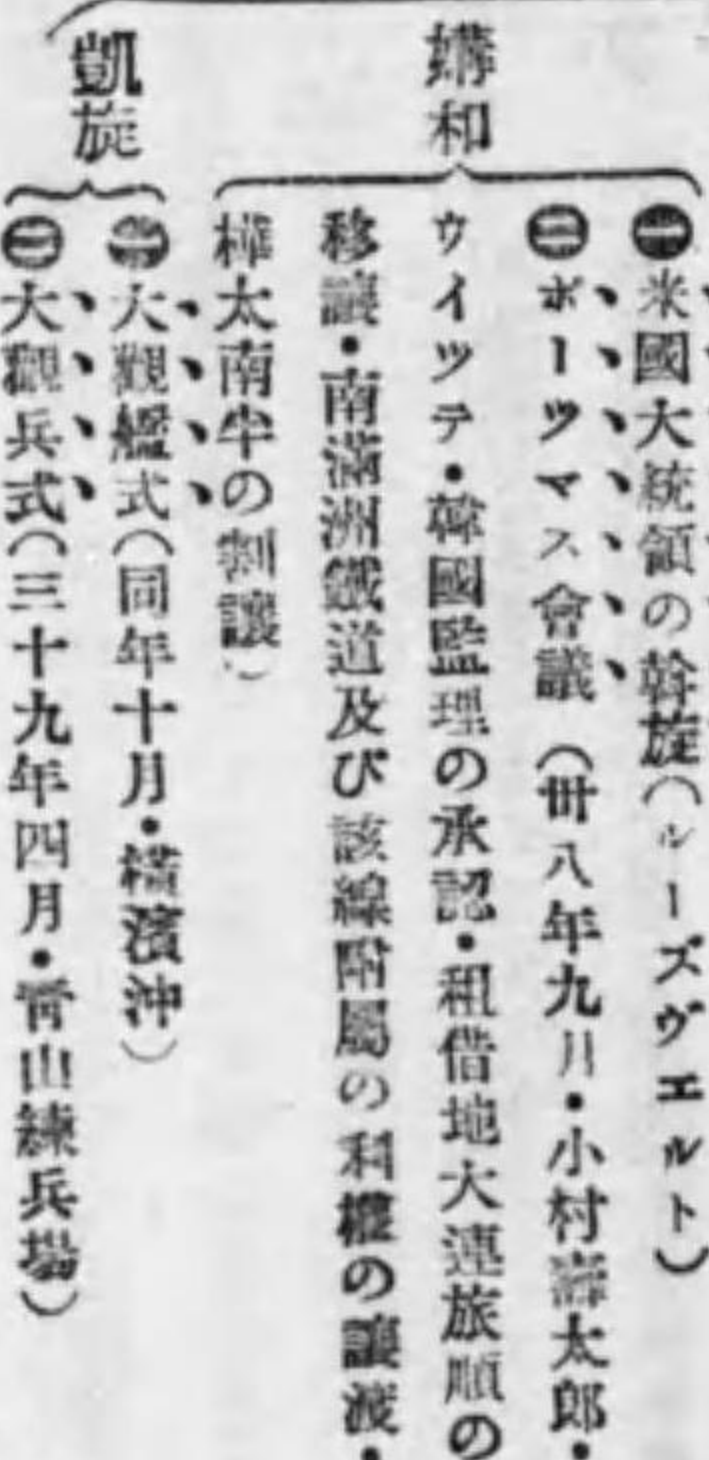 媾和
㊀米國大統領の斡旋(ルーズヴエルト)
㊁ポーツマス會議(卅八年九月・小村壽太郎・
ウイツテ・韓國監理の承認・租借地大連旅順の
移讓・南滿洲鐵道及び該線附屬の利權の讓渡・
樺太南半の割讓)
凱旋
㊀大觀艦式(同年十月・橫濱沖)
㊁大觀兵式(三十九年四月・靑山練兵場)